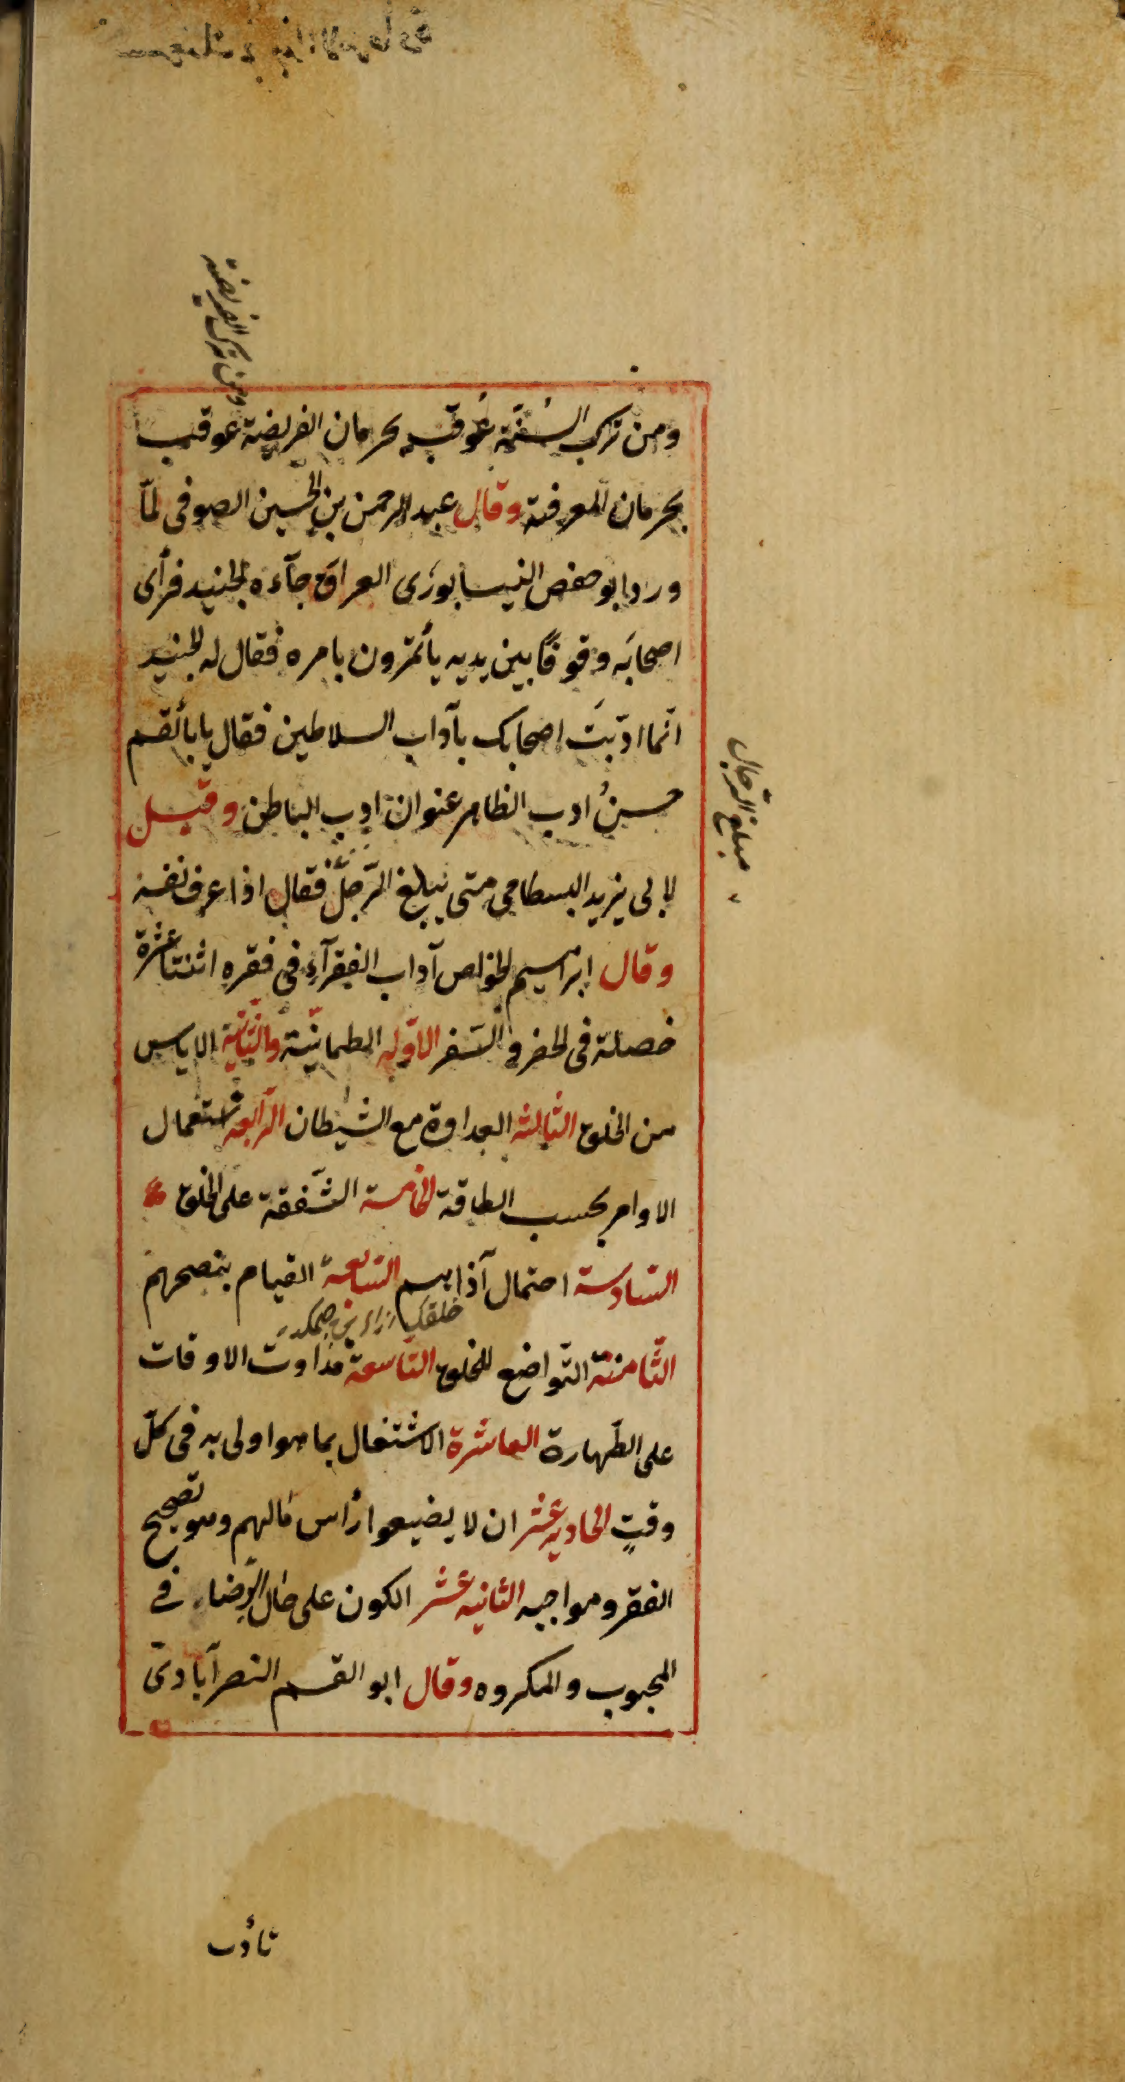 ومن ترك الفريضة
ومن ترك السُنّة عُوقب بحرمان الفريضة عوقب
بحرمان المعرفة وقال عبد الرحمن بن الحسين الصوفى لمّا
ورد ابو حفص النيسابورى العراق جآءه الجنيد فرأى
اصحابَه وقوفًا بين يديه يأتمرون بامره فقال له الجنيد
انّما ادّبتَ اصحابك بآداب السلاطين فقال يا باألقسم
حسنُ ادب الظاهر عنوان ادب الباطن وقيل
لابى يزيد البسطامى متى يبلغ الرّجل فقال اذا عرف نفسه
مبلغ الرّجال
وقال ابراهيم الخواص آداب الفقرآء فى فقره اثنتا عشرة
خصلة فى الحضر و السّفر الاوّله الطمانيّة والثّانيّة الاياس
من الخلق الثالثه العداوة مع الشيطان الرّابعه استعمال
الاوامر بحسب الطاقة الخامسة الشّفقة على الخلق
السّادسة احتمال آذاهم السّابعة القيام بنصحهم
الثّامنة التّواضع للخلق التّاسعة مداومت الاوقات
على الطّهارة العاشرة الاشتغال بما هو اولى به فى كلّ
وقتٍ الحاديه عشر ان لا يضيعوا رأس مالهم وهو تصحيح
الفقر ومواجبه الثانيه عشر الكون على حال الرّضاء فى
المحبوب والمكروه وقال ابو القسم النصرآبادى
تأدب